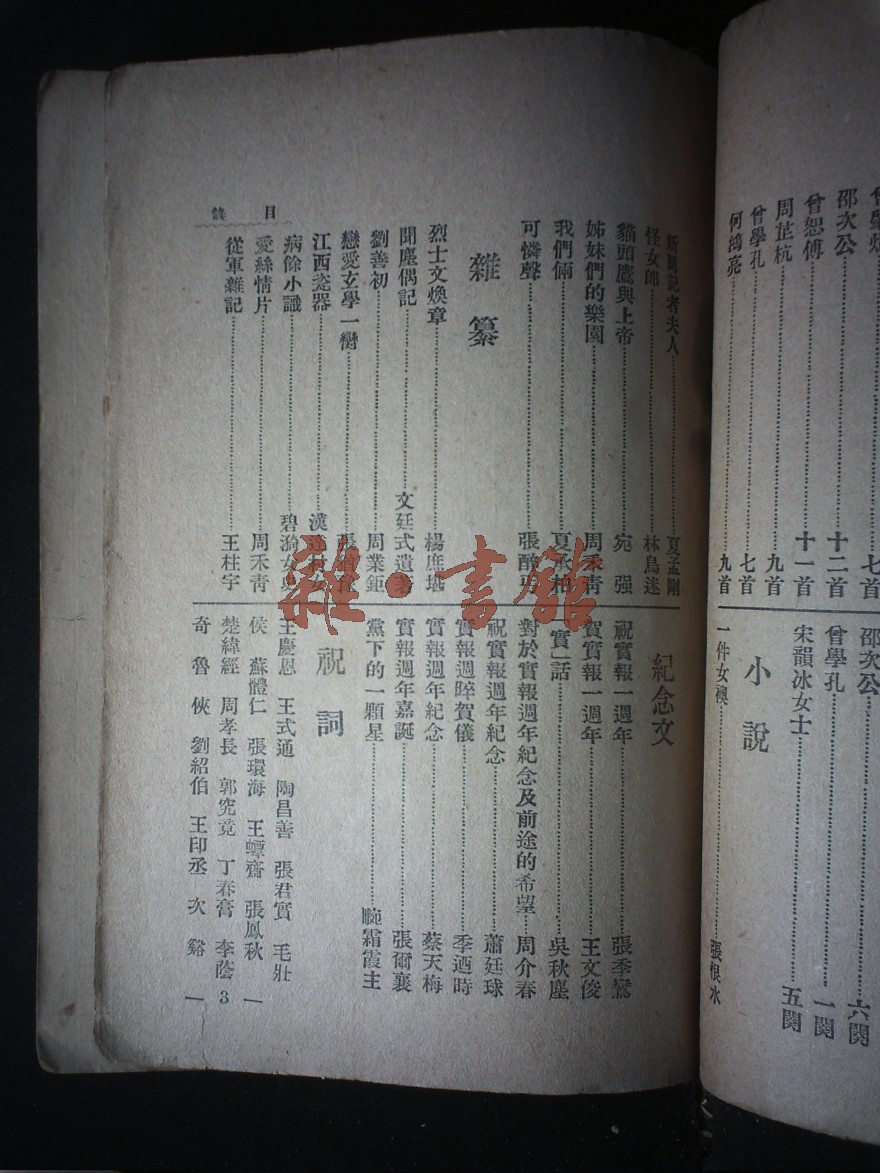 邵次公 十二首
曾恕傅 十一首
周芷杭 九首
曾學孔 七首
何鴻亮 九首
邵次公 六闋
曾學孔 一闋
宋韻冰女士 五闋
小說
一件女襖 張恨水
目錄
新聞記者夫人 夏孟剛
怪女郎 林鳥迷
貓頭鷹與上帝 宛强
姊妹們的樂園 周禾靑
我們倆 夏承柏
可憐聲
雜纂
烈士文煥章 楊庶堪
聞塵偶記 文廷式遺著
劉善初 周業鉅
戀愛玄學一臠
江西瓷器
病餘小識
愛絲情片 周禾靑
從軍雜記 王柱宇
紀念文
祝實報一週年 張季鸞
賀實報一週年 王文俊
「實」話 吳秋塵
對於實報週年紀念及前途的希望 周介春
祝實報週年紀念 蕭廷球
實報週晬賀儀 季迺時
實報週年紀念 蔡天梅
實報週年嘉誕 張爾襄
黨下的一顆星 畹霜霞主
祝詞
王慶恩 王式通 陶昌善 張君實 毛壯
侯 蘇體仁 張環海 王蟫齋 張鳳秋
楚緯經 周孝長 郭究竟 丁春膏 李蔭
奇 魯俠 劉紹伯 王印丞 次谿
3
雜·書館